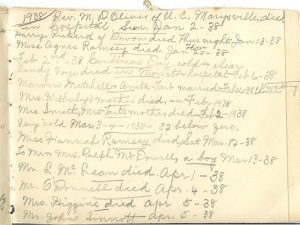 1938 Rev. M. D. Oliver of U.C. Marysville died
in hospital Sun. Jan 2 - 38
Harry Pickard of Devon died Thurs night Jan 13 - 38
Miss Agnes Ramsey died Jan - 38
Feb 2nd 38 Candlemas Day, cold & clear
Sandy died hospital Feb 6 - 38
Mitchell married Feb
Mrs. mother died in Feb 1938
Mrs Smith, Mrs mother died Feb 2 - 1938
Very cold Mar. 3 - 4 - 1938 - 32 below zero.
Miss Hannah Ramsey died Sat Mar 12 - 38
To Mr & Mrs. Ralph McDowell, a boy Mar 13 - 38
Mr. L McLean died Apr 1 - 38
Mr. O'Donnell died Apr 4 - 38
Mrs. Higgins died Apr 5 - 38
Mr. John Sinnott Apr 5 - 38